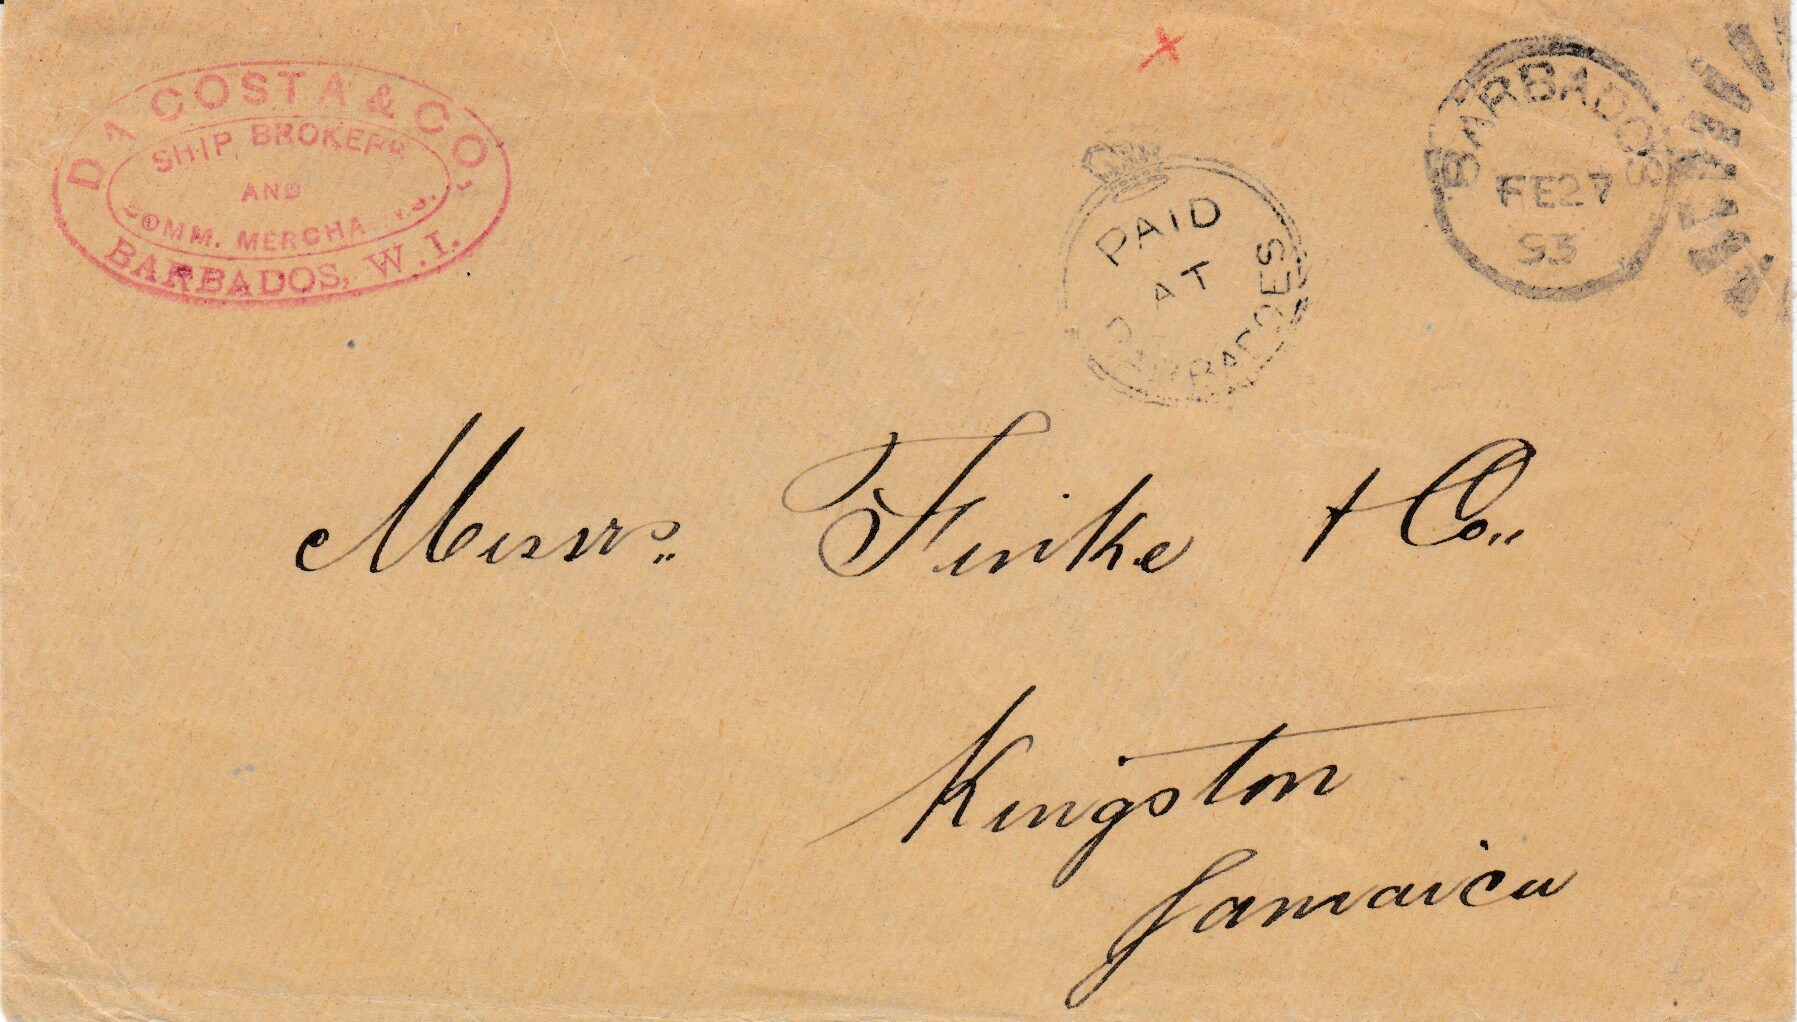 DA COSTA & CO.
SHIP BROKERS
AND
COMM. MERCHANTS.
BARBADOS, W. I.
PAID
AT
BARBADOES
BARBADOS
FE 27
93
Messrs. Finke & Co.,
Kingston
Jamaica